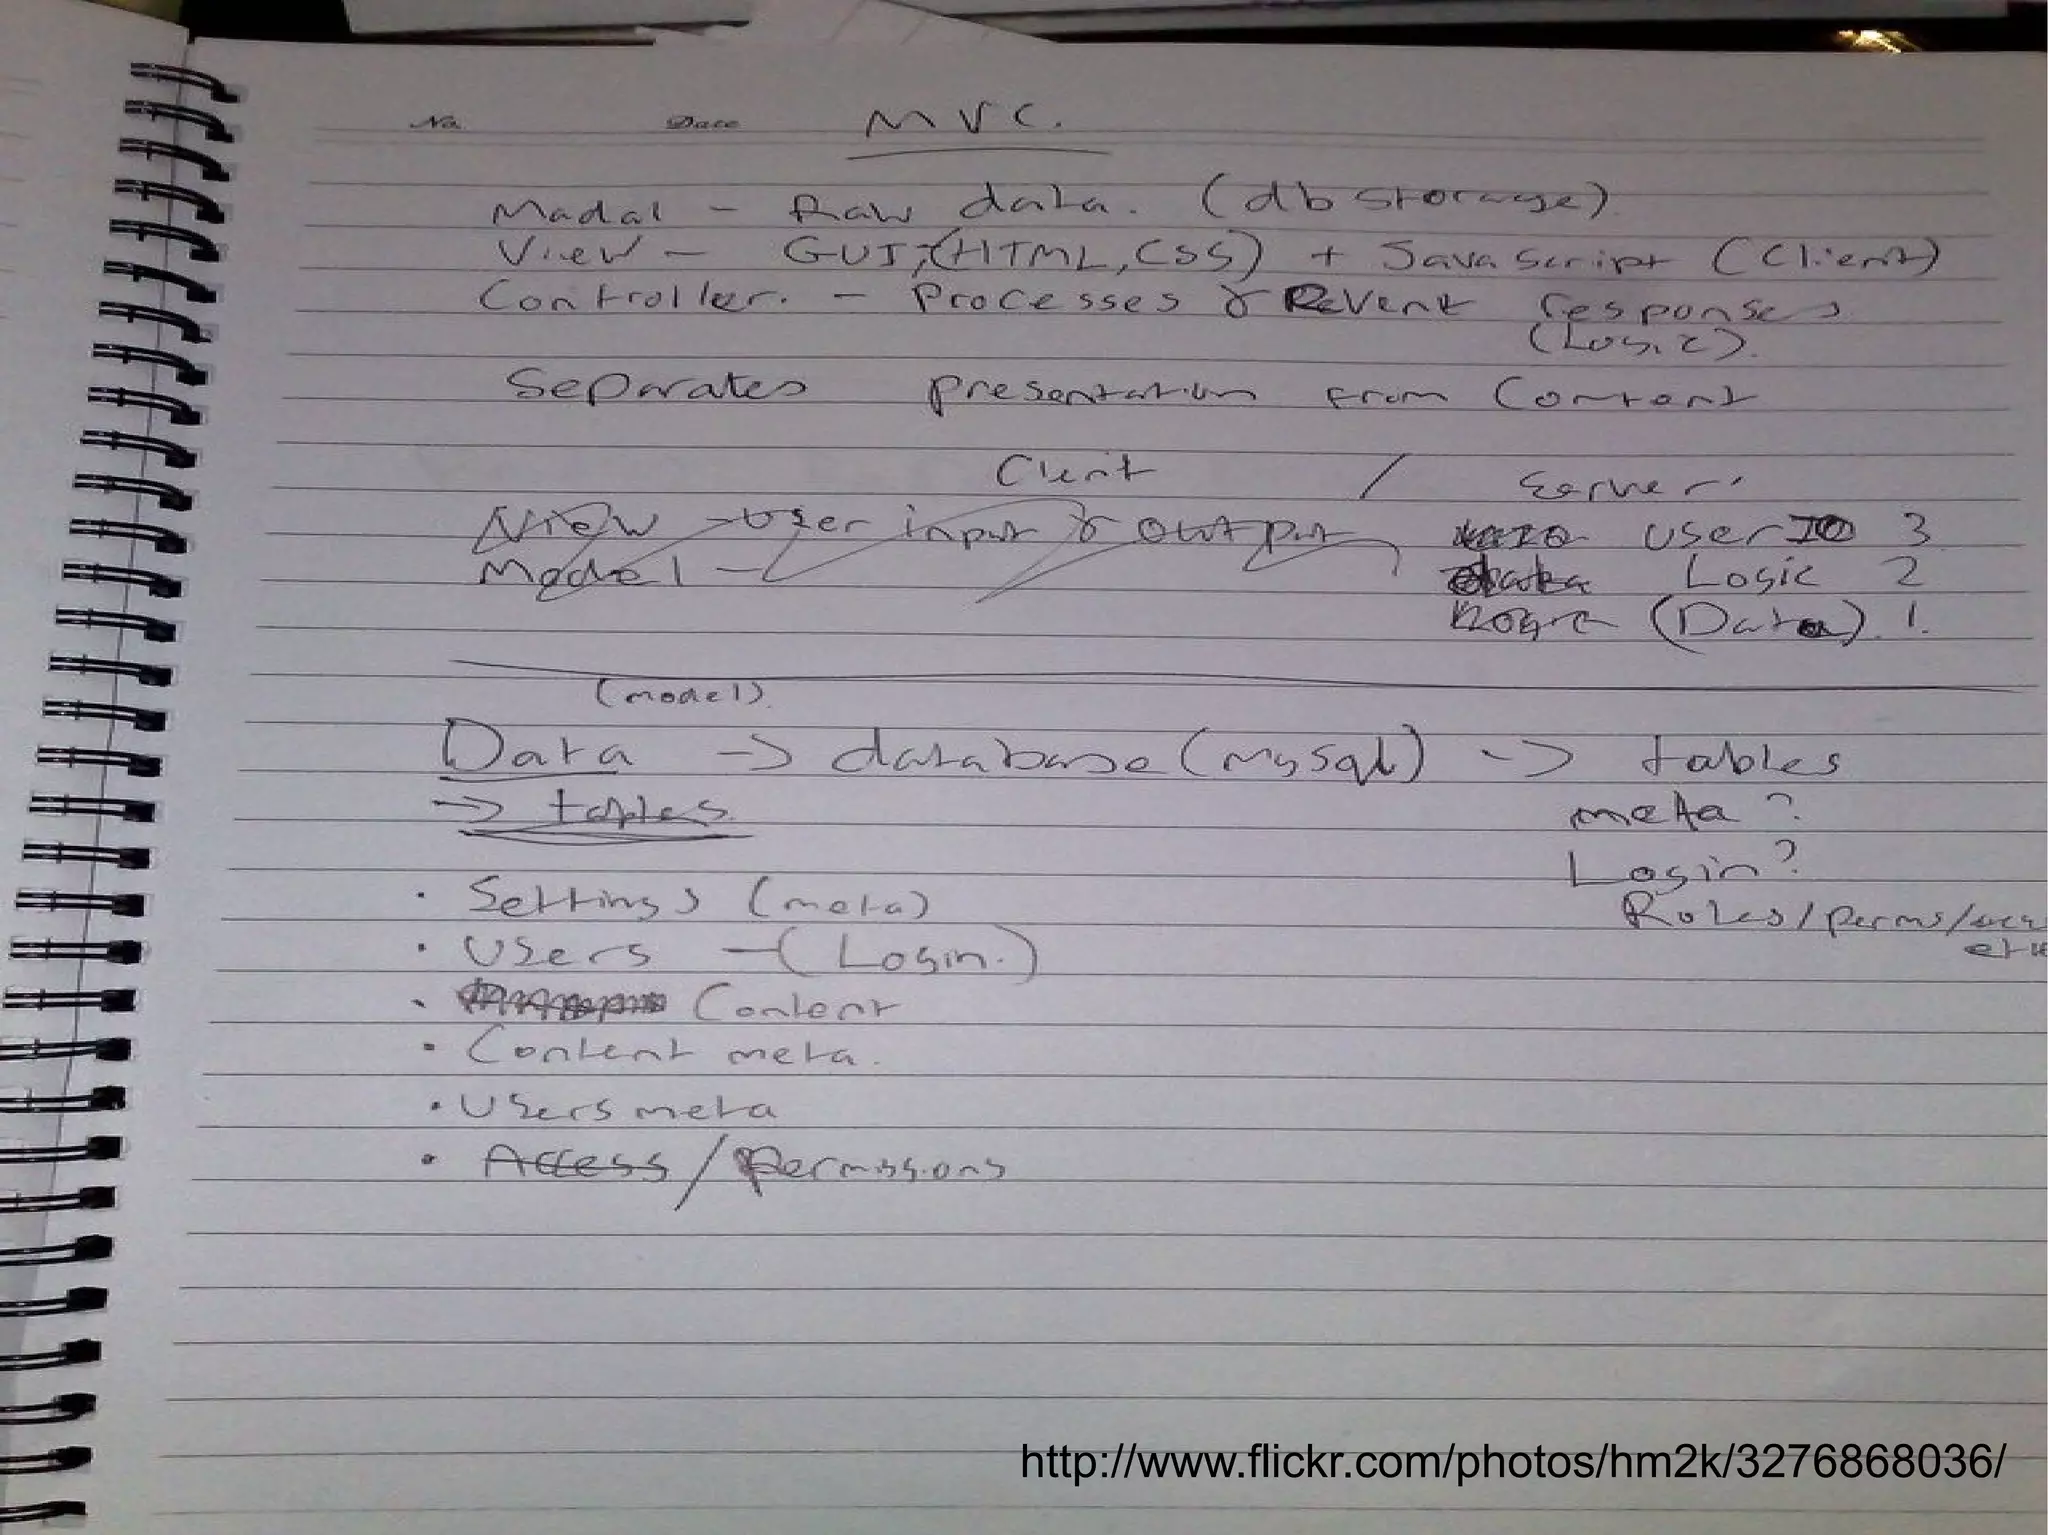 No. Date MVC.
Madal - Raw data. (db storage)
View - GUI, (HTML, CSS) + JavaScript (Client)
Controller. - Processes & Event responses
(Logic).
Separates presentation from Content
Client / Server.
View - User input & Output
Model -
User IO 3
data Logic 2
Logic (Data). 1.
(model).
Data -> database (mysql) -> tables
-> tables
meta?
Login?
Roles/perms/
• Settings (meta)
• Users - (Login.)
• Content
• Content meta.
• Users meta
• Access / Permissions
http://www.flickr.com/photos/hm2k/3276868036/